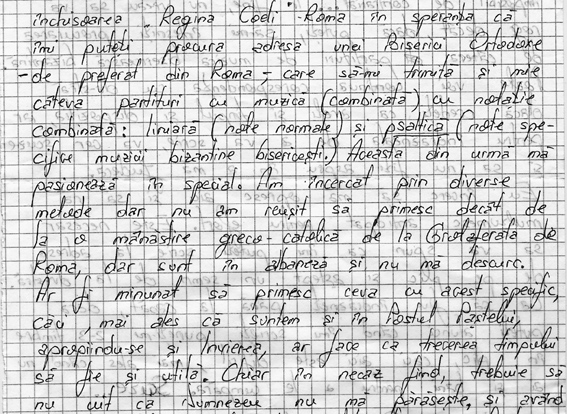 închisoarea „Regina Coeli" Roma în speranța că
îmi puteți procura adresa unei Biserici Ortodoxe
- de preferat din Roma - care să-mi trimită și mie
câteva partituri cu muzică (combinată) cu notație
combinată: liniară (note normale) și psaltică (note spe-
cifice muzicii bizantine bisericești.) Aceasta din urmă mă
pasionează în special. Am încercat prin diverse
metode dar nu am reușit să primesc decât de
la o mănăstire greco-catolică de la Grotaferata de
Roma, dar sunt în albaneză și nu mă descurc.
Ar fi minunat să primesc ceva cu acest specific,
căci, mai ales că suntem și în Postul Paștelui,
apropiindu-se și Învierea, ar face ca trecerea timpului
să fie și utilă. Chiar în necaz fiind, trebuie să
nu uit că Dumnezeu nu mă părăsește, și având